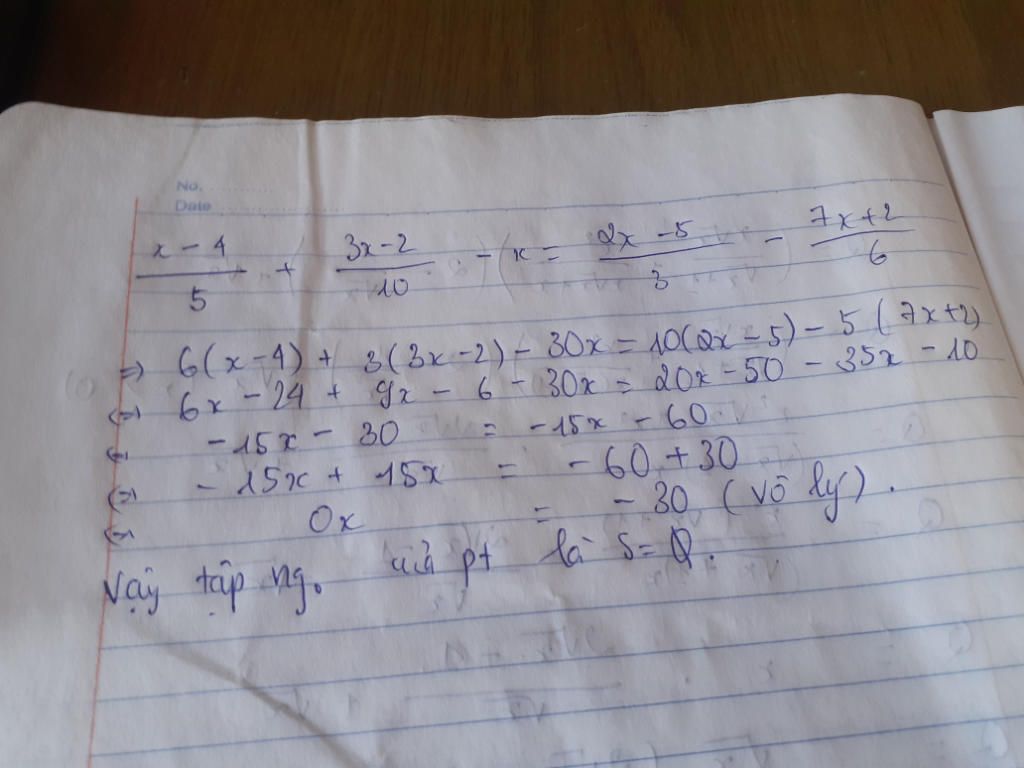 No.
Date
x - 4 / 5 + 3x - 2 / 10 - x = 2x - 5 / 3 - 7x + 2 / 6
=> 6(x - 4) + 3(3x - 2) - 30x = 10(2x - 5) - 5(7x + 2)
<=> 6x - 24 + 9x - 6 - 30x = 20x - 50 - 35x - 10
<=> -15x - 30 = -15x - 60
<=> -15x + 15x = -60 + 30
<=> 0x = -30 (vô lý).
Vậy tập ng. của pt là S = Ø.